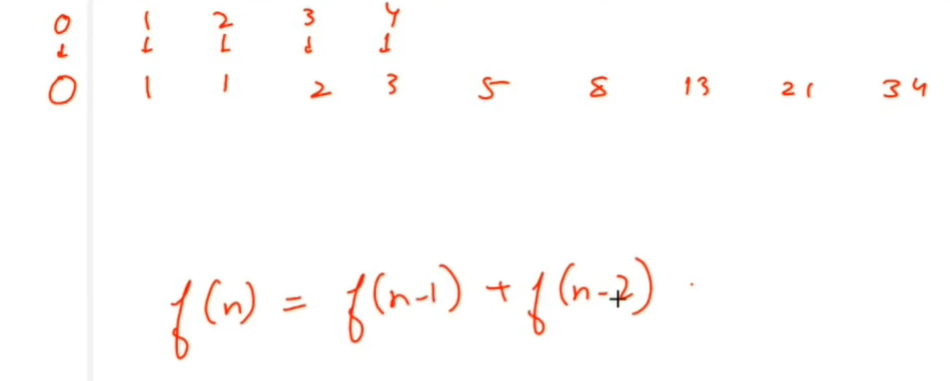 0 1 2 3 4
↓ ↓ ↓ ↓ ↓
0 1 1 2 3 5 8 13 21 34
f(n) = f(n-1) + f(n-2)